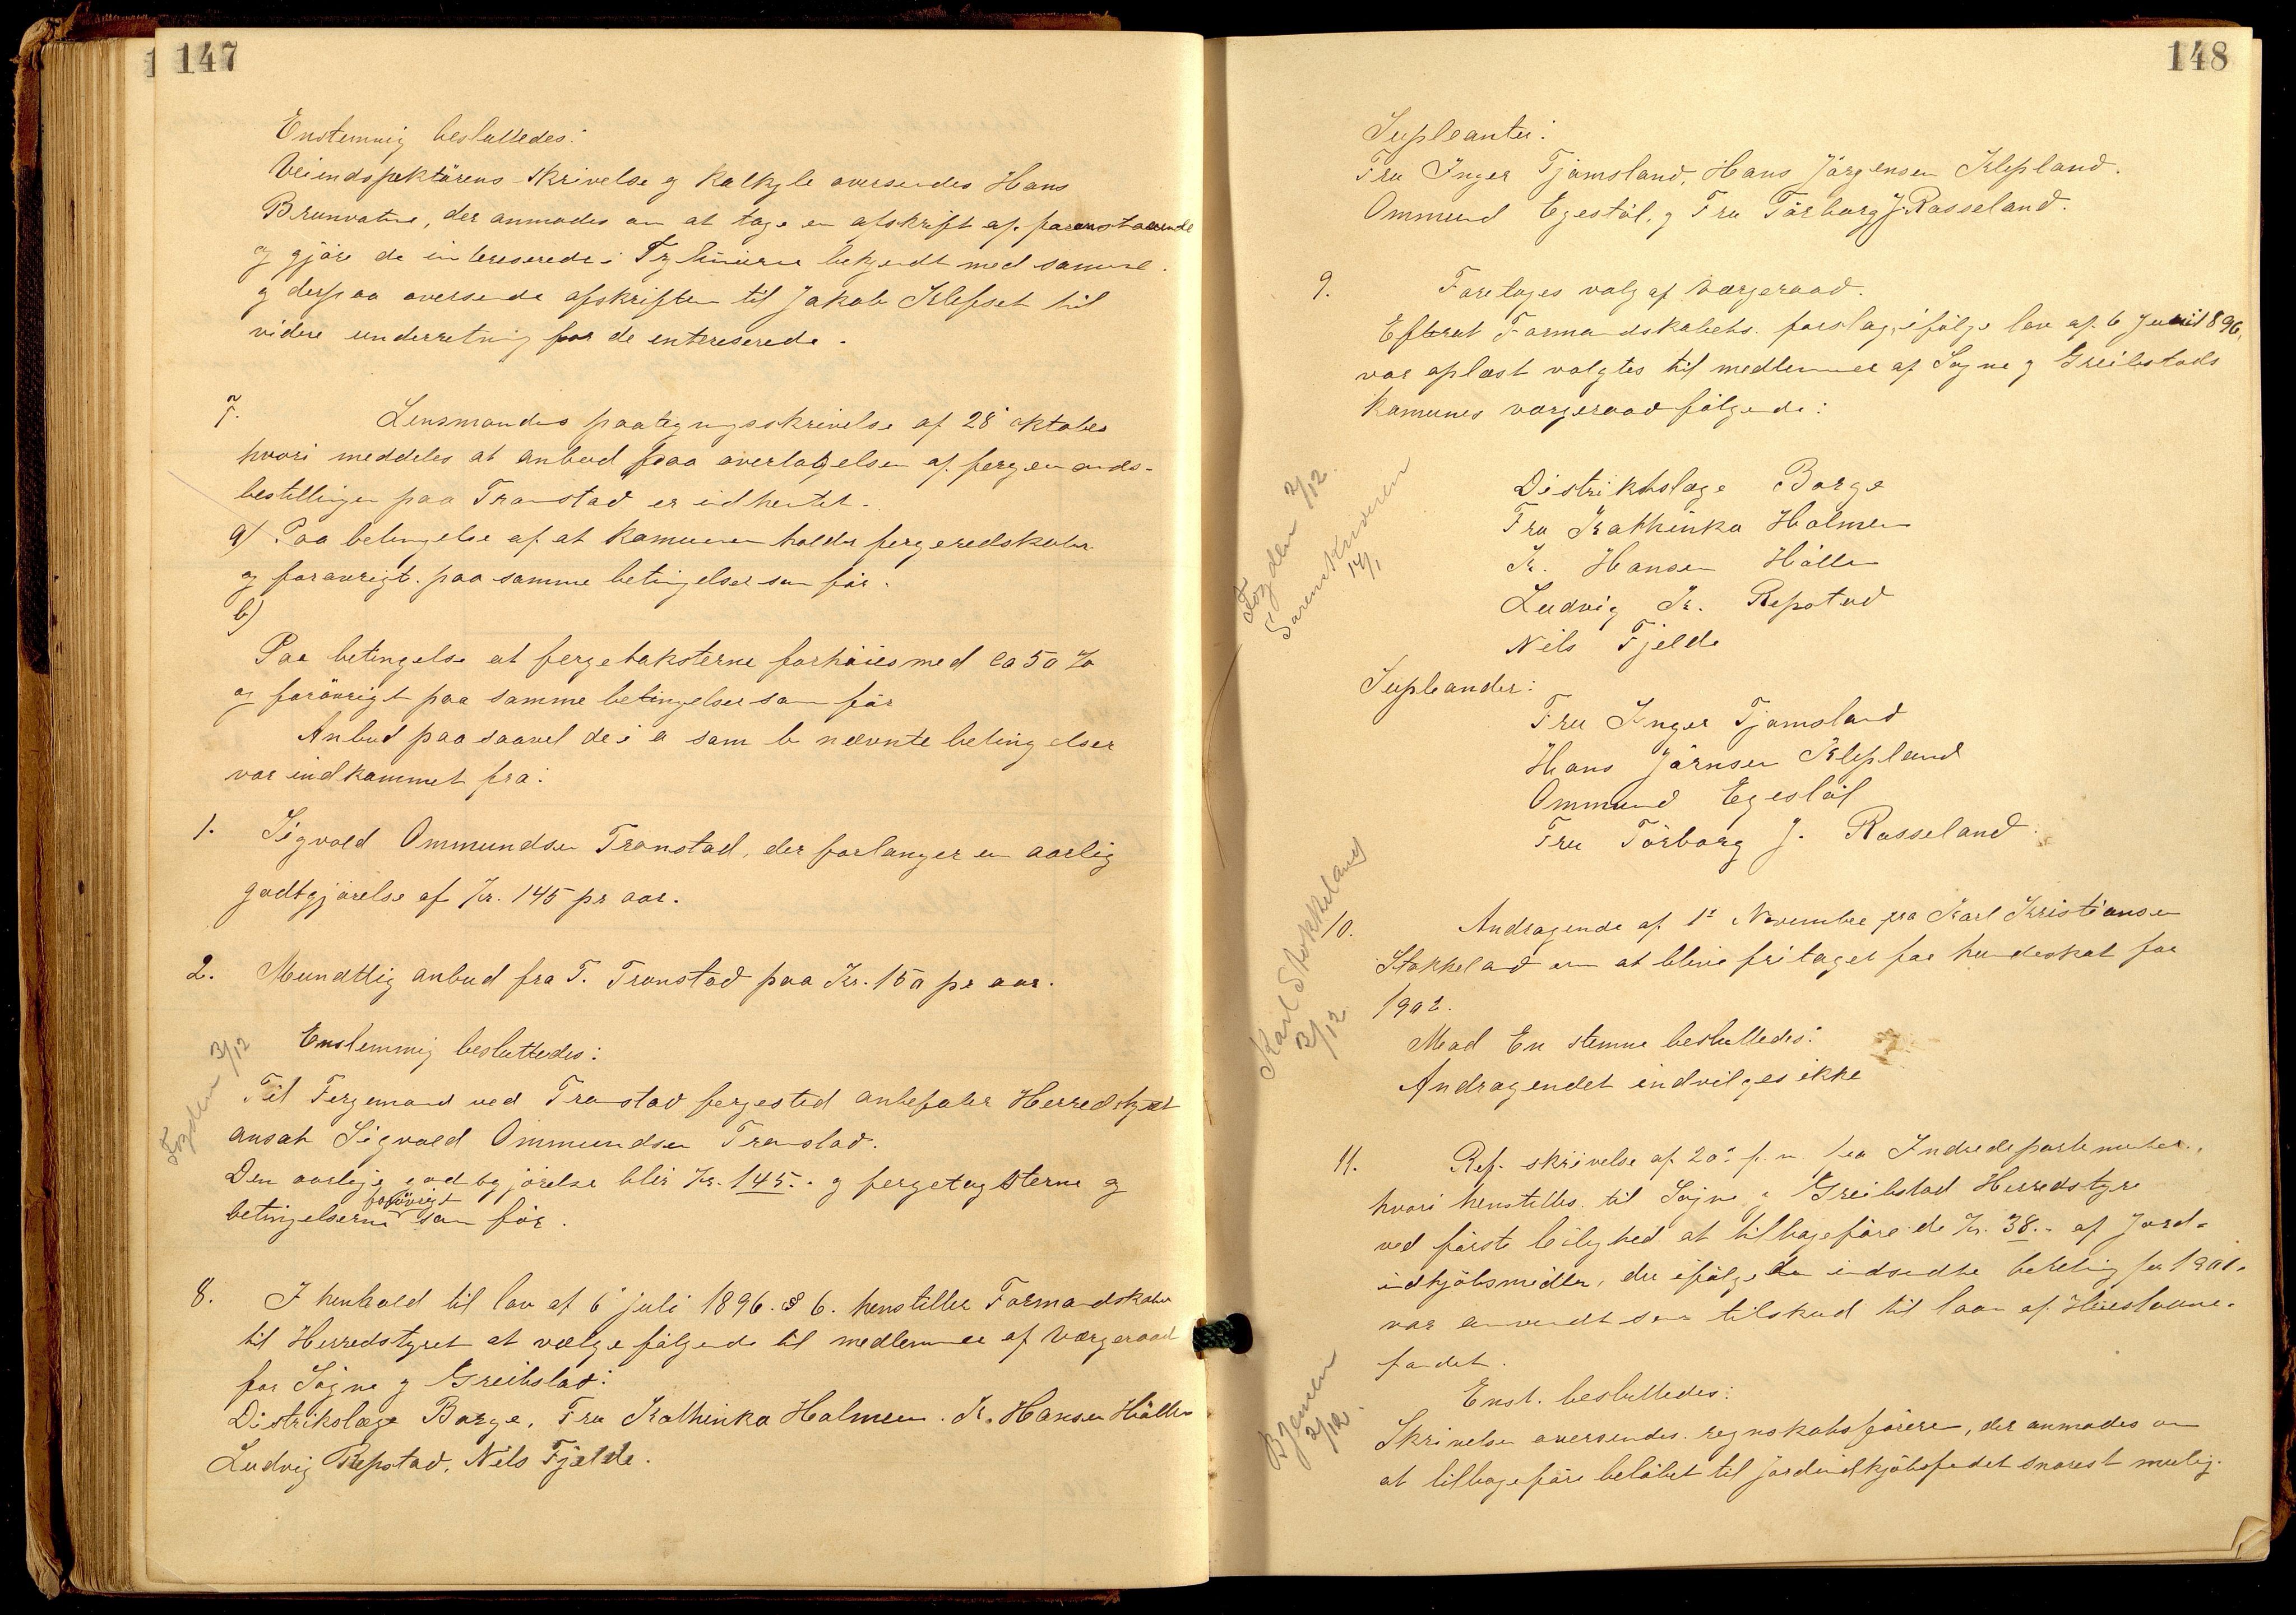 147
Enstemmig besluttedes:
Veiindspektörens skrivelse og kalkyle oversendes Hans
Brunvatne, der anmodes om at tage en afskrift af foranstaaende
og gjöre de interesserede i bekjendt med samme.
og derpaa oversende afskriften til Jakob Klepset til
videre underretning for de entereserede.
7. Lensmandens paategningsskrivelse af 28 oktober
hvori meddeles at anbud paa overtagelsen af fergemands-
bestillingen paa Tronstad er indhentet.
a) Paa betingelse af at kamunen holder fergeredskaber
og forøvrigt paa samme betingelser som för.
b)
Paa betingelse at fergetaksterne forhöies med ca 50 %
og forövrigt paa samme betingelser som för
Anbud paa saavel de i a som b nævnte betingelser
var indkommet fra:
1. Sigvald Ommundsen Tronstad, der forlanger en aarlig
godtgjörelse af Kr. 145 pr aar.
2. Mundtlig anbud fra T. Tronstad paa Kr. 150 pr aar.
Fogden 3/12
Enstemmig besluttedes:
Til Fergemand ved Tronstad fergested anbefaler Herredstyret
ansat Sigvald Ommundsen Tronstad.
Den aarlige godtgjörelse blir Kr. 145.- og fergetagsterne og
forövrigt
betingelserne som för.
8. I henhold til lov af 6 juli 1896 § 6. henstiller Formandskabet
til Herredstyret at vælge fölgende til medlemmer af Værgeraad
for Sögne og Greibstad:
Distrikslæge Borge, Fru Kathinka Holmen. K. Hansen Hölle
Ludvig Repstad, Nils Fjelde.
148
Supleanter:
Fru Inger Tjomsland, Hans Jörgensen Klepland.
Ommund Egestöl, og Fru Törborg J. Rosseland.
9. Foretoges valg af Værgeraad.
Efterat Formandskabets forslag, ifölge lov af 6 Juni 1896,
var oplæst valgtes til medlemmer af Sögne og Greibstads
Kamunes værgeraad fölgende:
Fogden 2/12.
Sorenskriveren
14/1
Distriktslæge Borge
Fru Kathinka Holmen
K. Hansen Hölle
Ludvig Kr. Repstad
Nils Fjelde
Supleander:
Fru Inger Tjomsland
Hans Jörnsen Klepland
Ommund Egestöl
Fru Törborg J. Rosseland.
Karl Stokkeland
3/12
10. Andragende af 1ste November fra Karl Kristiansen
Stokkeland om at blive fritaget for hundeskat for
1902.
Mod En stemme besluttedes:
Andragendet indvilges ikke
11. Ref. skrivelse af 20de f. m. fra Indredepartementet,
hvori henstilles til Sögne og Greibstad Herredstyre
ved förste leilighed at tilbageföre de Kr. 38.- af Jord-
indkjöbsmidler, der ifölge den indsendte beretning for 1901.
var anvendt som tilskud til laan af Huslaane-
fondet.
Bjemen
2/12.
Enst. besluttedes:
Skrivelsen oversendes regnskabsföreren, der anmodes om
at tilbageföre belöbet til jordindkjöbsfondet snarest mulig.